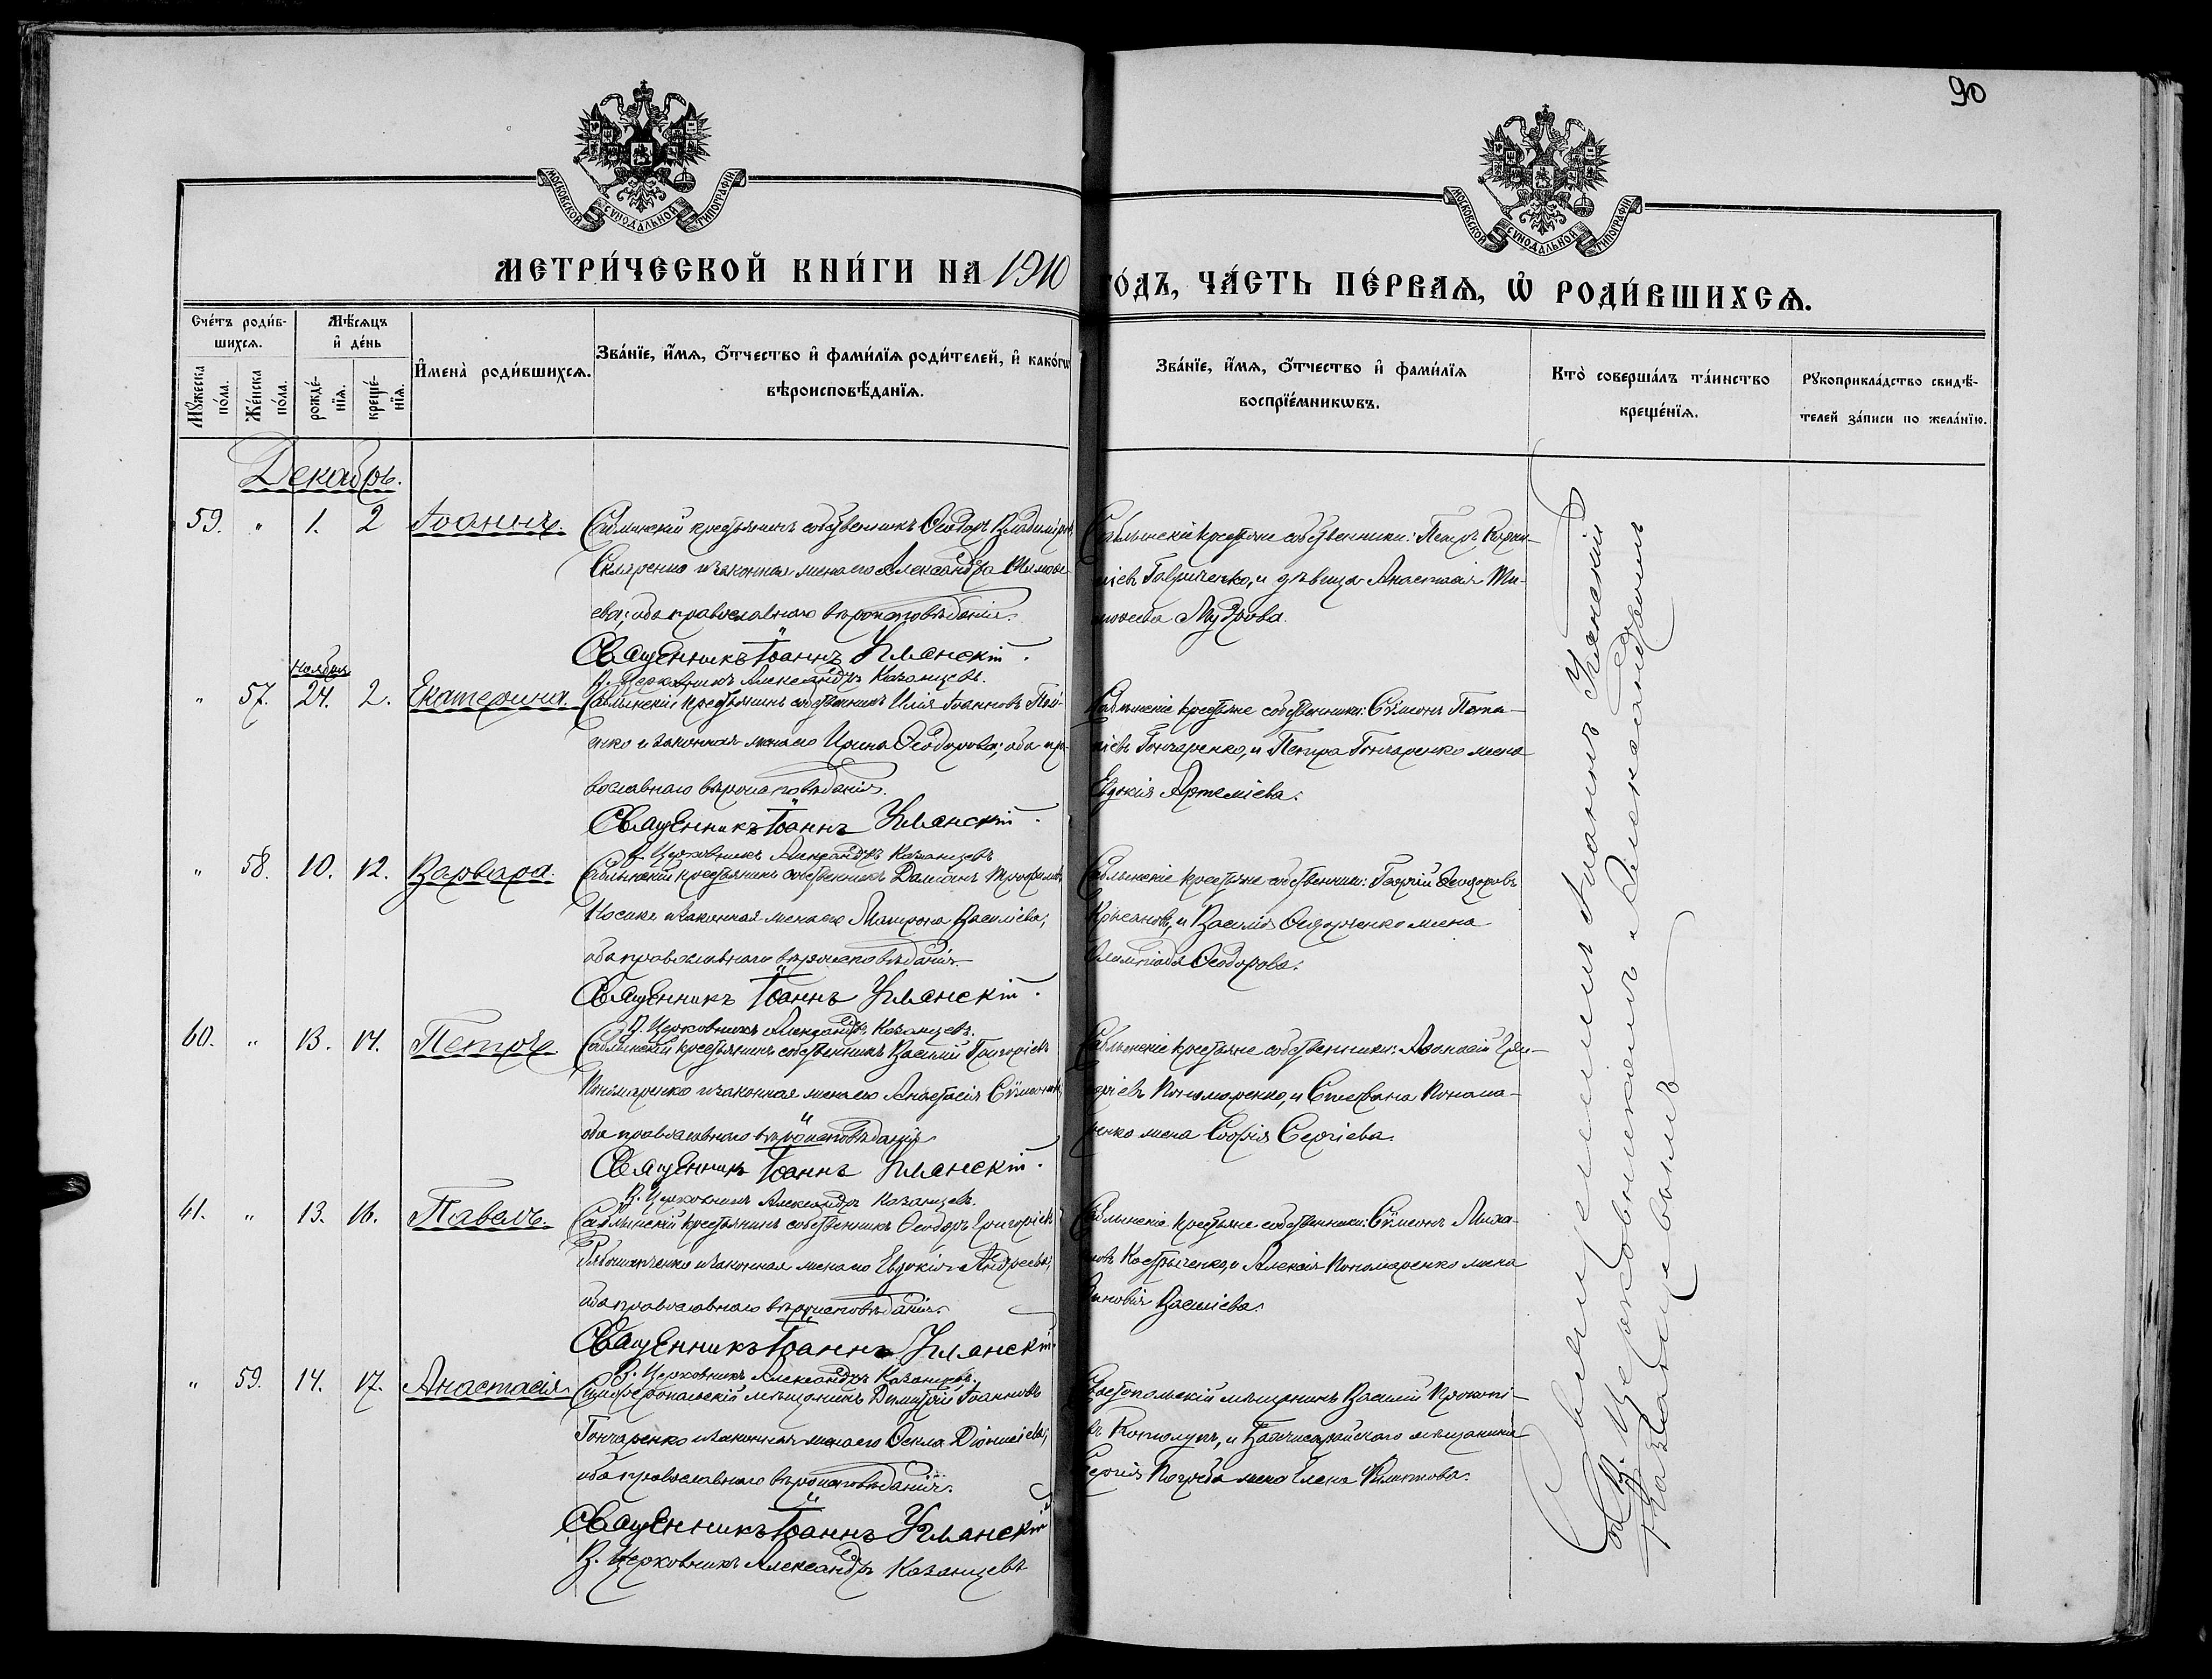 90
МОСКОВСКОЙ СУНОДАЛЬНОЙ ТИПОГРАФІИ
МОСКОВСКОЙ СУНОДАЛЬНОЙ ТИПОГРАФІИ
МЕТРИ́ЧЕСКОЙ КНИ́ГИ НА 1910 ГО́ДЪ, ЧА́СТЬ ПЕ́РВАѦ, Ѡ҆ РОДИ́ВШИХСѦ.
Сче́тъ роди́в-
шихсѧ.
Мꙋ́жеска
по́ла.
Же́нска
по́ла.
Мѣ́сѧцъ
и҆ де́нь
рожде́-
нїѧ.
креще́-
нїѧ.
И҆мена̀ роди́вшихсѧ.
Зва́нїе, и҆́мѧ, ѻ҆́тчество и҆ фами́лїѧ роди́телей, и҆ како́гѡ
вѣроисповѣ́данїѧ.
Зва́нїе, и҆́мѧ, ѻ҆́тчество и҆ фами́лїѧ
воспрїе́мникѡвъ.
Кто̀ соверша́лъ та́инство
креще́нїѧ.
Рꙋкоприкла́дство свидѣ́-
телей за́писи по жела́нїю.
Декабрь.
59. " 1. 2 Іоаннъ. Саблынскій крестьянинъ собственникъ Ѳеодоръ Владиміровъ
Скляренко и законная жена его Александра Тимоѳе-
ева; оба православнаго вѣроисповѣданія.
Священникъ Іоаннъ Уманскій.
В. Церковникъ Александръ Казанцевъ.
Саблынскіе крестьяне собственники: Петръ
Гавриченко, и дѣвица Анастасія Ти-
моѳеева Мудрова.
Ноября
" 57. 24. 2. Екатерина. Саблынскій крестьянинъ собственникъ Илія Іоанновъ
енко и законная жена его Ирина Ѳеодорова; оба пра-
вославнаго вѣроисповѣданія.
Священникъ Іоаннъ Уманскій.
В. Церковникъ Александръ Казанцевъ
Саблынскіе крестьяне собственники: Сѵмеонъ Пота-
піевъ Гончаренко, и Петра Гончаренко жена
Евдокія Артеміева.
" 58. 10. 12. Варвара. Саблынскій крестьянинъ собственникъ Даміанъ Трофимовъ
Носикъ и законная жена его Матрона Василіева;
оба православнаго вѣроисповѣданія.
Священникъ Іоаннъ Уманскій.
В. Церковникъ Александръ Казанцевъ.
Саблынскіе крестьяне собственники: Георгій Ѳеодоровъ
и Василія Ѳедорченко жена
Олимпіада Ѳеодорова.
60. " 13. 14. Петръ. Саблынскій крестьянинъ собственникъ Василій Григоріевъ
Пономаренко и законная жена его Анастасія Сѵмеонова;
оба православнаго вѣроисповѣданія.
Священникъ Іоаннъ Уманскій.
В. Церковникъ Александръ Казанцевъ.
Саблынскіе крестьяне собственники: Аѳанасій Гри-
горіевъ Пономаренко, и Стефана Понома-
ренко жена Софія Сергіева.
61. " 13. 16. Павелъ. Саблынскій крестьянинъ собственникъ Ѳеодоръ Григоріевъ
и законная жена его Евдокія Андреева;
оба православнаго вѣроисповѣданія.
Священникъ Іоаннъ Уманскій.
В. Церковникъ Александръ Казанцевъ.
Саблынскіе крестьяне собственники: Сѵмеонъ Миха-
иловъ Костыченко, и Алексія Пономаренко жена
Зиновія Василіева.
" 59. 14. 17. Анастасія. Симферопольскій мѣщанинъ Димитрій Іоанновъ
Гончаренко и законная жена его Ѳекла Діонисіева;
оба православнаго вѣроисповѣданія.
Священникъ Іоаннъ Уманскій
В. Церковникъ Александръ Казанцевъ
Севастопольскій мѣщанинъ Василій Прокопі-
евъ и Бахчисарайскаго мѣщанина
Сергія жена Елена
Священникъ Іоаннъ Уманскій
съ В. Церковникомъ Александромъ
Казанцевымъ